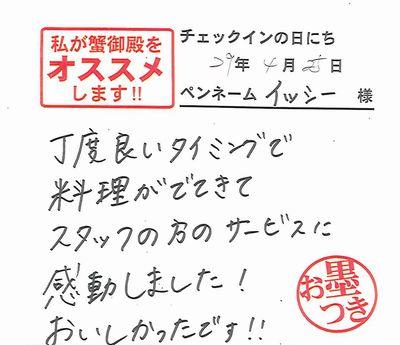 私が蟹御殿を
オススメ
します!!
チェックインの日にち
29年4月25日
ペンネーム イッシー 様
丁度良いタイミングで
料理がでてきて
スタッフの方のサービスに
感動しました!
おいしかったです!!
お墨つき